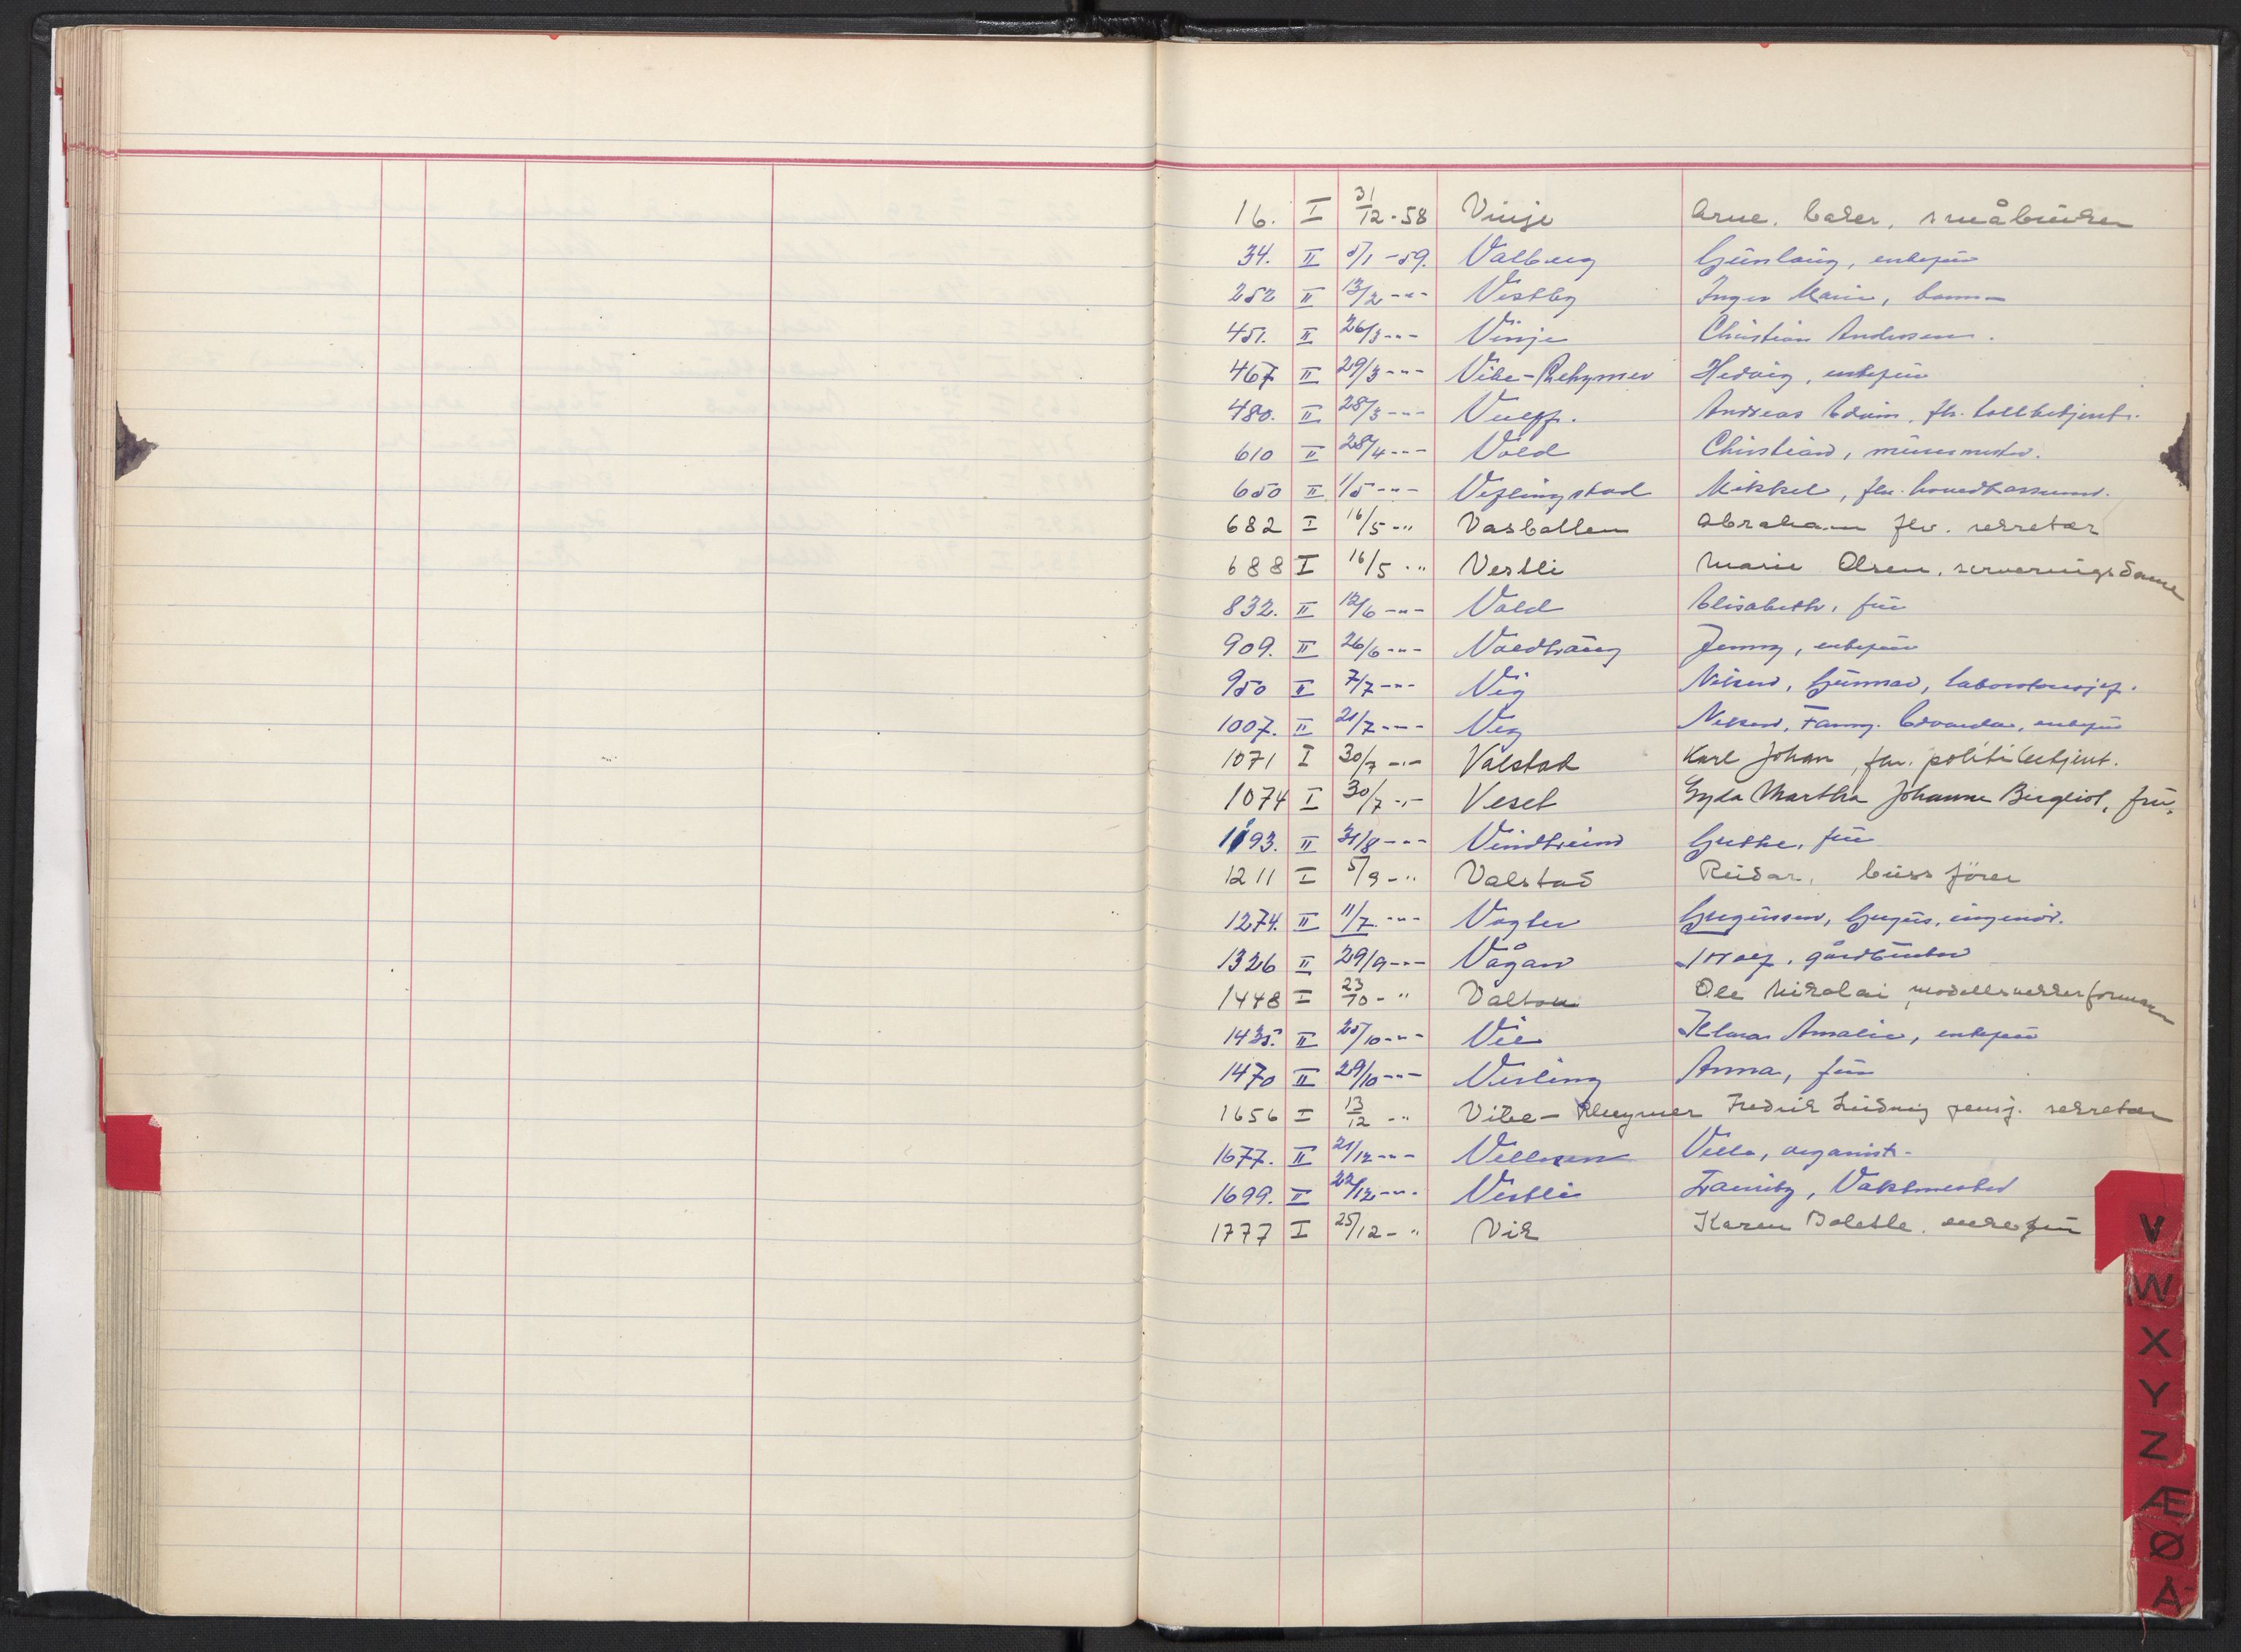 16. I 31/12-58 Vinje Arne, småbruker
34. II 5/1-59. Valberg Gunlaug, enkefru
252 II 13/2 -"- Vestby Inger Marie, barn -
451. II 26/3 -"- Vinje Christian Andersen.
467 II 29/3 -"- Vibe-Rehymer Hedvig, enkefru
480. II 28/3 -"- Andreas Edvin, fh. tollbetjent.
610 II 28/4 -"- Vold Christian, murmester.
650 II 1/5 -"- Veflingstad Mikkel, fhv.
682 I 16/5 -" Vasbotten Abraham fhv. sekretær
688 I 16/5 -" Vestli Marie Olsen, serveringsdame
832. II 12/6 -"- Vold Elisabeth, fru
909. II Jenny, enkefru
26/6 -"-
950 II 7/7 -"- Vig Nilsen, Gunnar,
1007. II 21/7 -"- Vig Nilsen, Fanny. Edvarda, enkefru
1071 I 30/7 -"- Valstad Karl Johan, fhv. politibetjent.
1074 I 30/7 -"- Vesel Gyda Martha Johanne Bergliot, fru.
1193. II 31/8 -"- Vindtveind Grethe, fru
1211 I 5/9 -" Valstad Reidar, bussfører
1274. II 11/7 -"- Vogter Gregersen, ingeniør.
1326 II 29/9 -"- Vågan gårdbruker
1448 I 23/10 -" Valton Ole Nikolai modellsnekkerformann
1435. II 25/10 -"- Vie Amalie, enkefru
1470 II 29/10 -"- Anna, fru
1656 I 13/12 -" Vibe- Rheymer Fredrik Ludvig pensj. sekretær
1677. II 21/12 -"- Vellesen organist.
1699. II 22/12 -"- Vestli Vaktmester
1777 I 25/12 -" Vik Karen Bolette, enkefru
V
W
X
Y
Z
Æ
Ø
Å